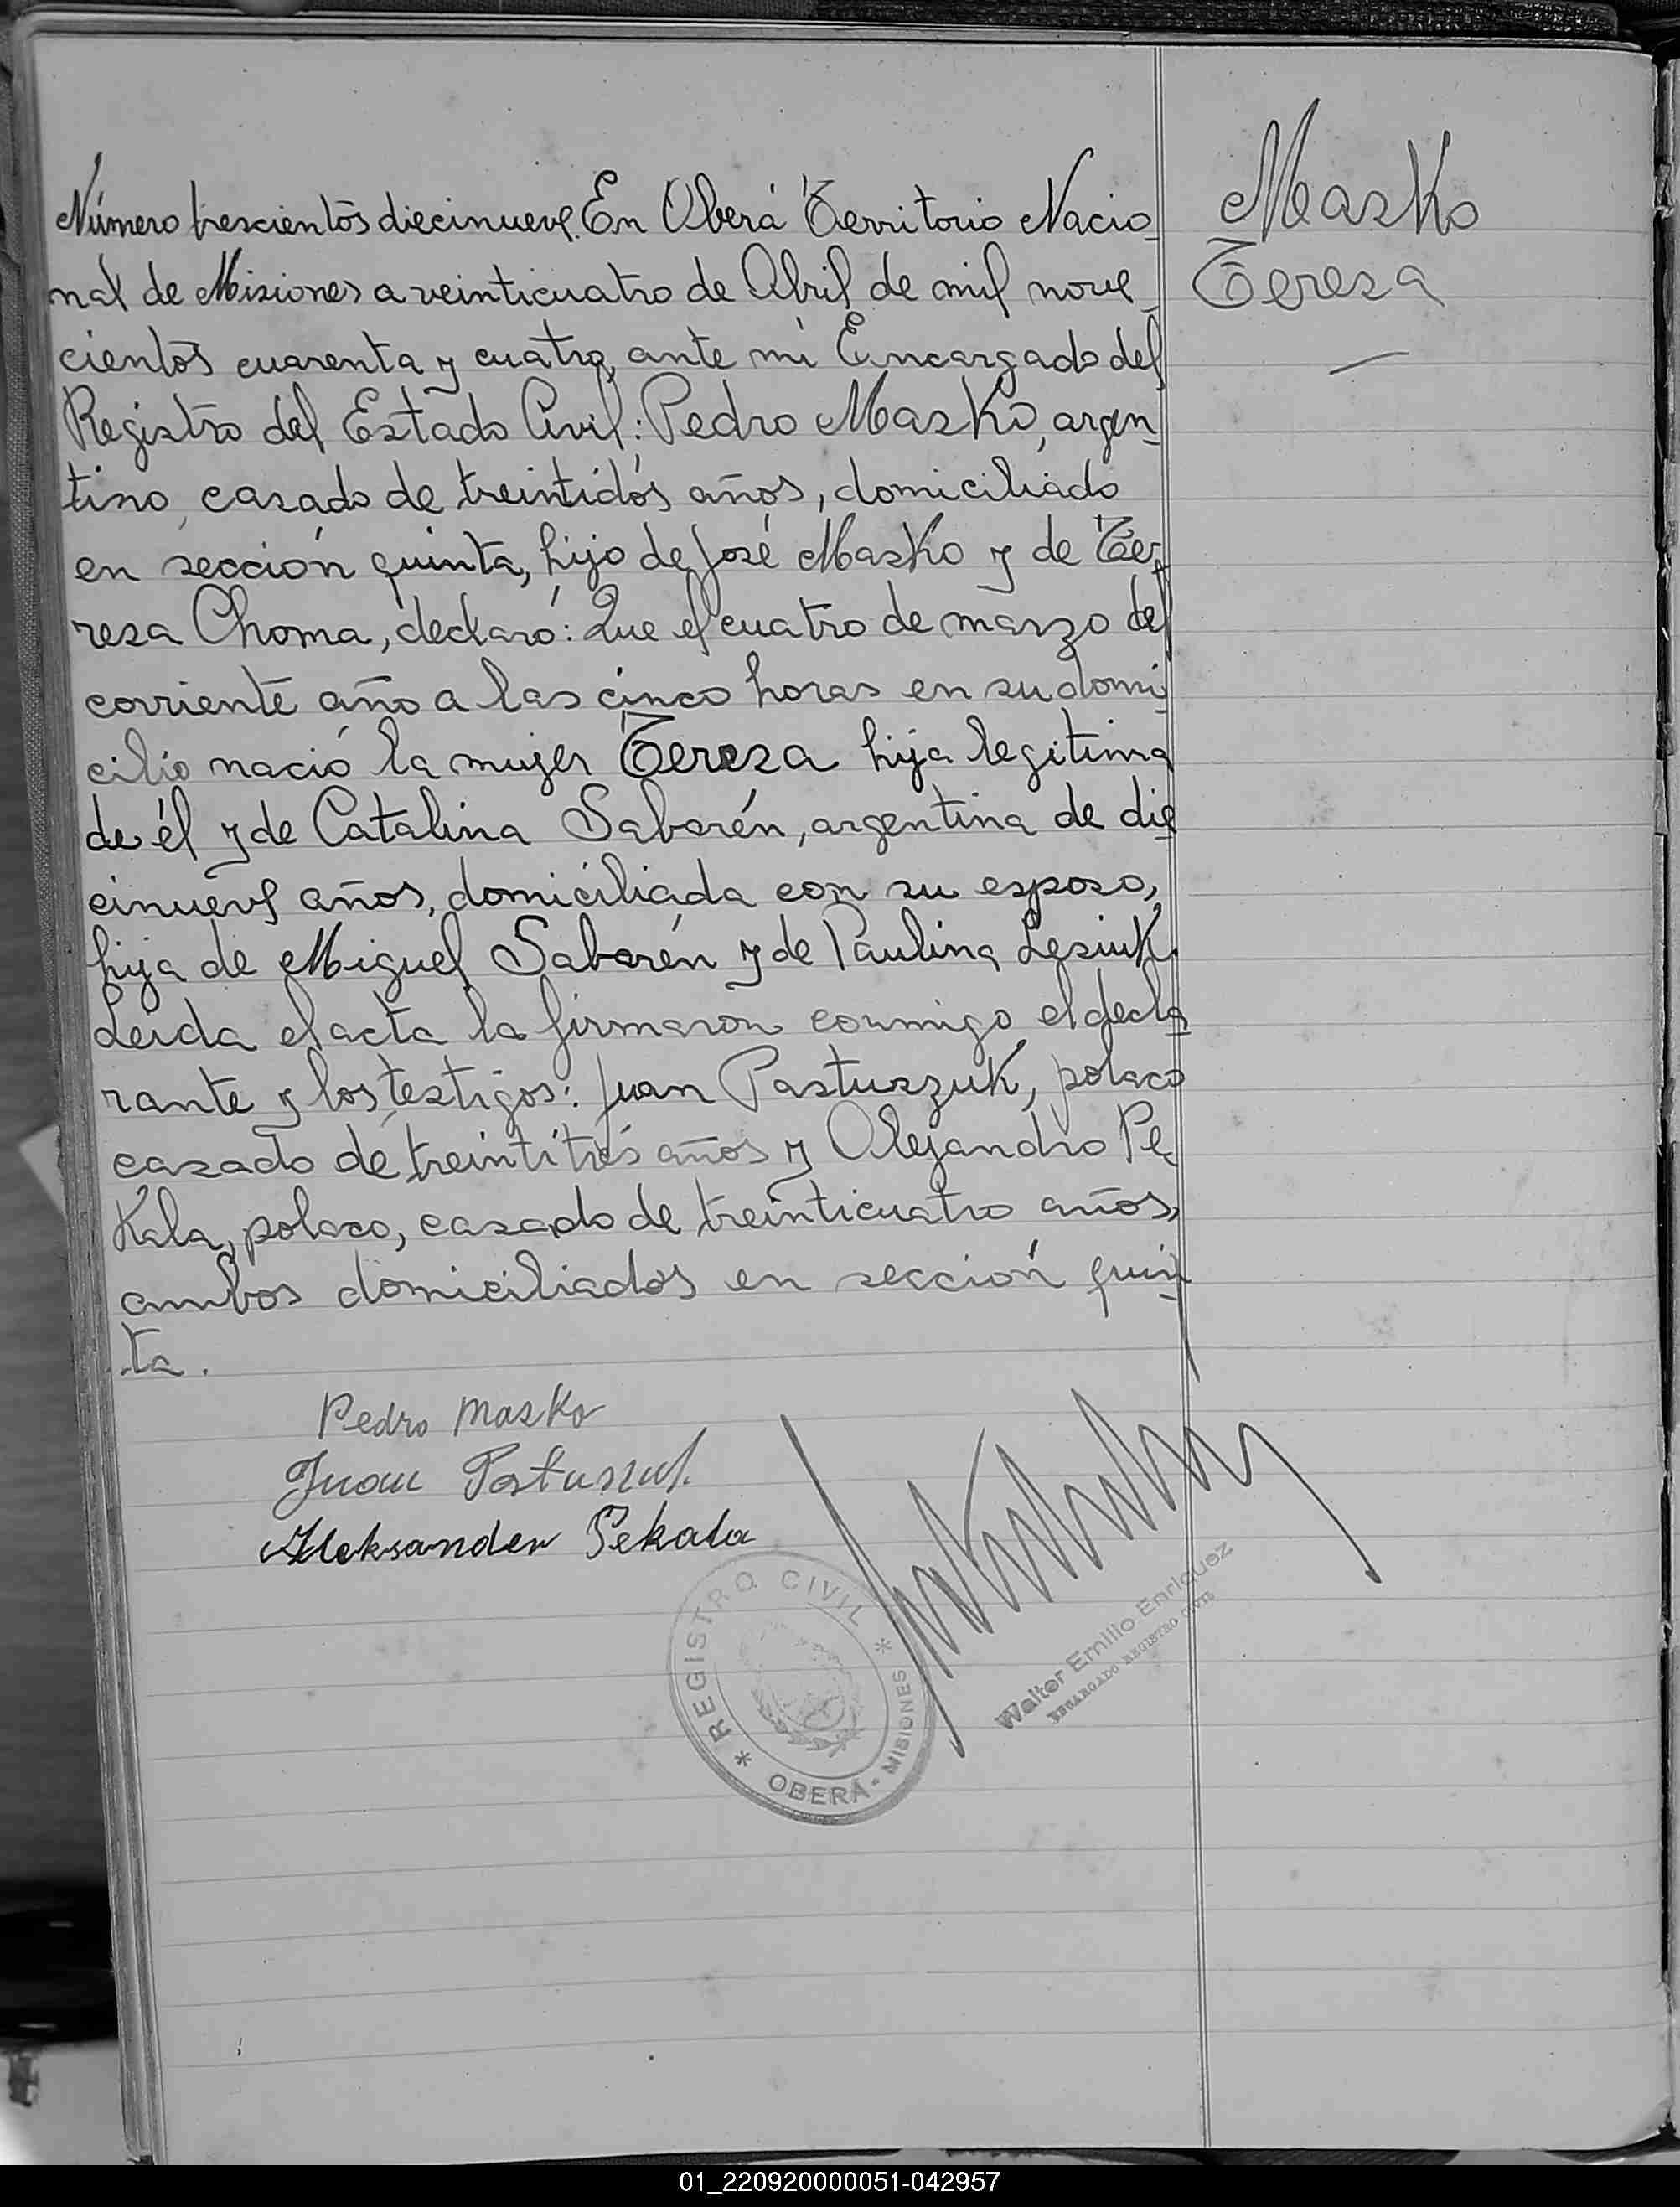 Número trescientos diecinueve. En Oberá Territorio Nacio_
nal de Misiones a veinticuatro de Abril de mil nove_
cientos cuarenta y cuatro, ante mi Encargado del
Registro del Estado Civil: Pedro Masko, argen_
tino, casado de treintidós años, domiciliado
en sección quinta, hijo de José Masko y de Te_
resa Choma, declaró: Que el cuatro de marzo del
corriente año a las cinco horas en su domi_
cilio nació la mujer Teresa hija legitima
de él y de Catalina Saborén, argentina de die
cinueve años, domiciliada con su esposo,
hija de Miguel Saborén y de Paulina Lesiuk.
Leida el acta la firmaron conmigo el decla
rante y los testigos: Juan Pastuszuk, polaco
casado de treintitrés años y Alejandro Pe_
kala, polaco, casado de treinticuatro años,
ambos domiciliados en sección quin_
ta.
Masko
Teresa
Pedro Masko
Juan Pastuszuk
Aleksander Pekala
* REGISTRO CIVIL *
OBERÁ - MISIONES
Walter Emilio Enriquez
ENCARGADO REGISTRO CIVIL
01_220920000051-042957